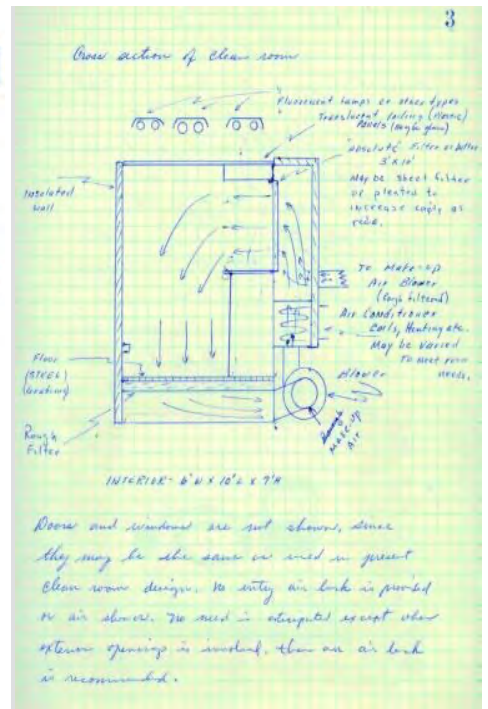 3
Cross section of clean room
Fluorescent lamps or other types
Translucent ceiling (plastic)
Panels (maybe glass)
"Absolute" Filter or better
3' X 10'
May be sheet filter
or pleated to
increase cap'y as
req'd.
Insulated
Wall
To Make-up
Air Blower
(Rough filtered)
Air Conditioner
Coils, Heating etc.
May be varied
To meet room
needs.
Floor
(STEEL)
(Grating)
Blower
Rough
Filter
Rough
Make-up
Air
INTERIOR- 6'W X 10'L X 7'H
Doors and windows are not shown, since
they may be the same as used in present
clean room design. No entry air lock is provided
or air shower. No need is anticipated except when
exterior openings is involved, then an air lock
is recommended.